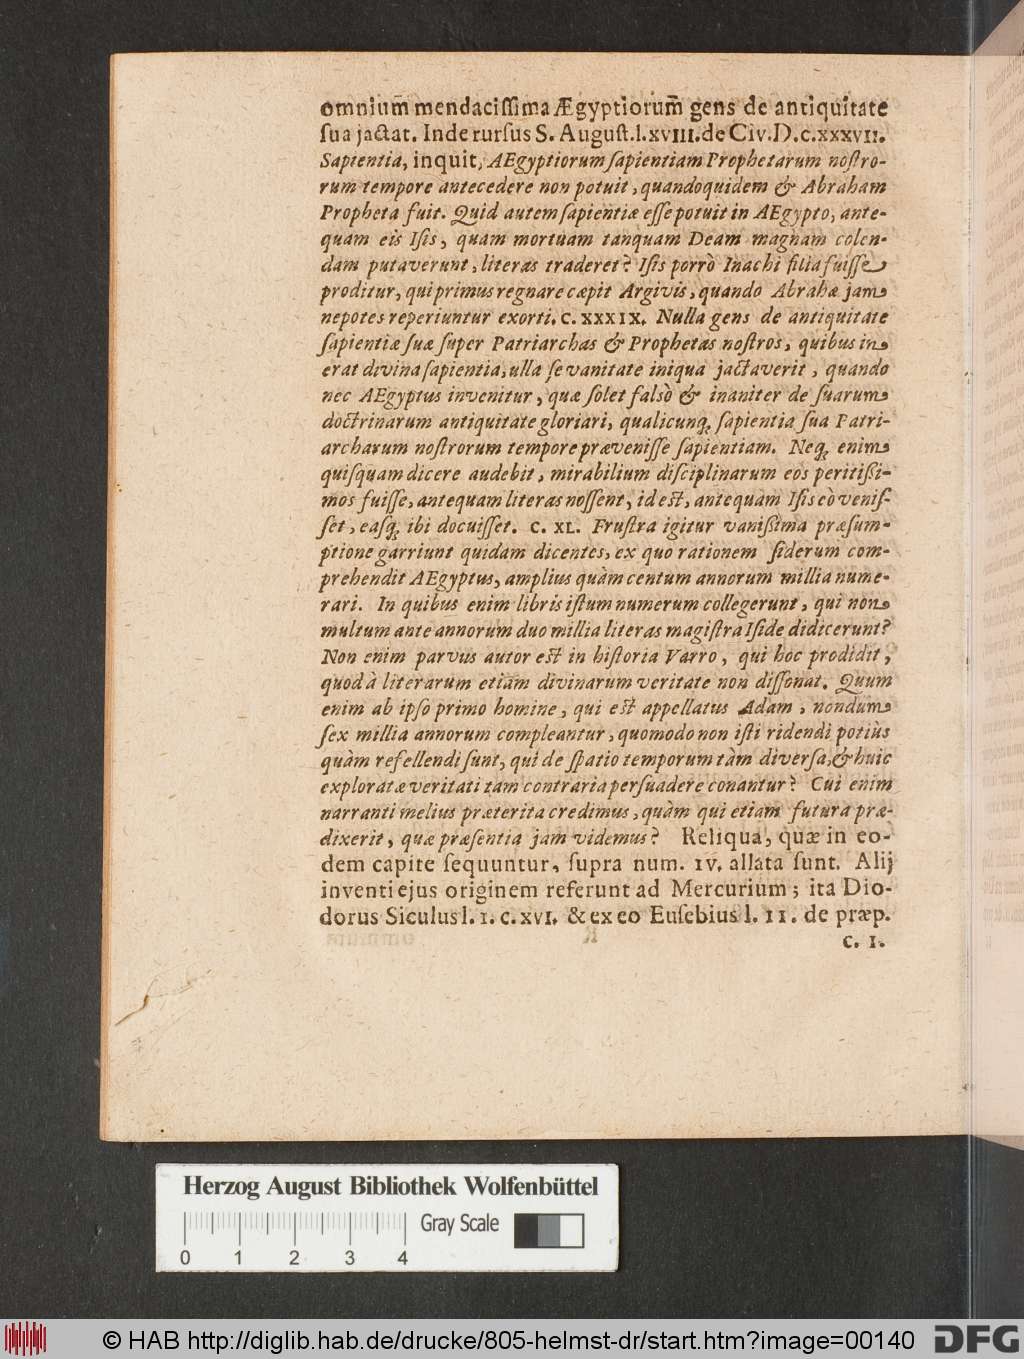 omnium̃ mendaciſſima Ægyptiorum̃ gens de antiquitate
ſua jactat. Inde rurſus S. Auguſt. l. xviii. de Civ. D. c. xxxvii.
Sapientia, inquit, AEgyptiorum ſapientiam Prophetarum noſtro-
rum tempore antecedere non potuit, quandoquidem & Abraham
Propheta fuit. Quid autem ſapientiæ eſſe potuit in AEgypto, ante-
quam eis Iſis, quam mortuam tanquam Deam magnam colen-
dam putaverunt, literas traderet? Iſis porrò Inachi filia fuiſſe
proditur, qui primus regnare cæpit Argivis, quando Abrahæ jam
nepotes reperiuntur exorti. C. XXXIX. Nulla gens de antiquitate
ſapientiæ ſuæ ſuper Patriarchas & Prophetas noſtros, quibus in
erat divina ſapientia, ulla ſe vanitate iniqua jactaverit, quando
nec AEgyptus invenitur, quæ ſolet falsò & inaniter de ſuarum
doctrinarum antiquitate gloriari, qualicunq; ſapientia ſua Patri-
archarum noſtrorum tempore præveniſſe ſapientiam. Neq; enim
quiſquam dicere audebit, mirabilium diſciplinarum eos peritißi-
mos fuiſſe, antequam literas noſſent, id est, antequam Iſis eò veniſ-
ſet, eaſq; ibi docuiſſet. C. XL. Fruſtra igitur vanißima præſum-
ptione garriunt quidam dicentes, ex quo rationem ſiderum com-
prehendit AEgyptus, amplius quàm centum annorum millia nume-
rari. In quibus enim libris iſtum numerum collegerunt, qui non
multum ante annorum duo millia literas magiſtra Iſide didicerunt?
Non enim parvus autor est in hiſtoria Varro, qui hoc prodidit,
quod à literarum etiam divinarum veritate non diſſonat. Quum
enim ab ipſo primo homine, qui est appellatus Adam, nondum
ſex millia annorum compleantur, quomodo non iſti ridendi potiùs
quàm refellendi ſunt, qui de ſpatio temporum tàm diverſa, & huic
exploratæ veritati tam contraria perſuadere conantur? Cui enim
narranti melius præterita credimus, quàm qui etiam futura præ-
dixerit, quæ præſentia jam videmus? Reliqua, quæ in eo-
dem capite ſequuntur, ſupra num. IV. allata ſunt. Alij
inventi ejus originem referunt ad Mercurium; ita Dio-
dorus Siculus l. I. c. XVI. & ex eo Euſebius l. II. de præp.
C. I.
Herzog August Bibliothek Wolfenbüttel
Gray Scale
0 1 2 3 4
© HAB http://diglib.hab.de/drucke/805-helmst-dr/start.htm?image=00140
DFG